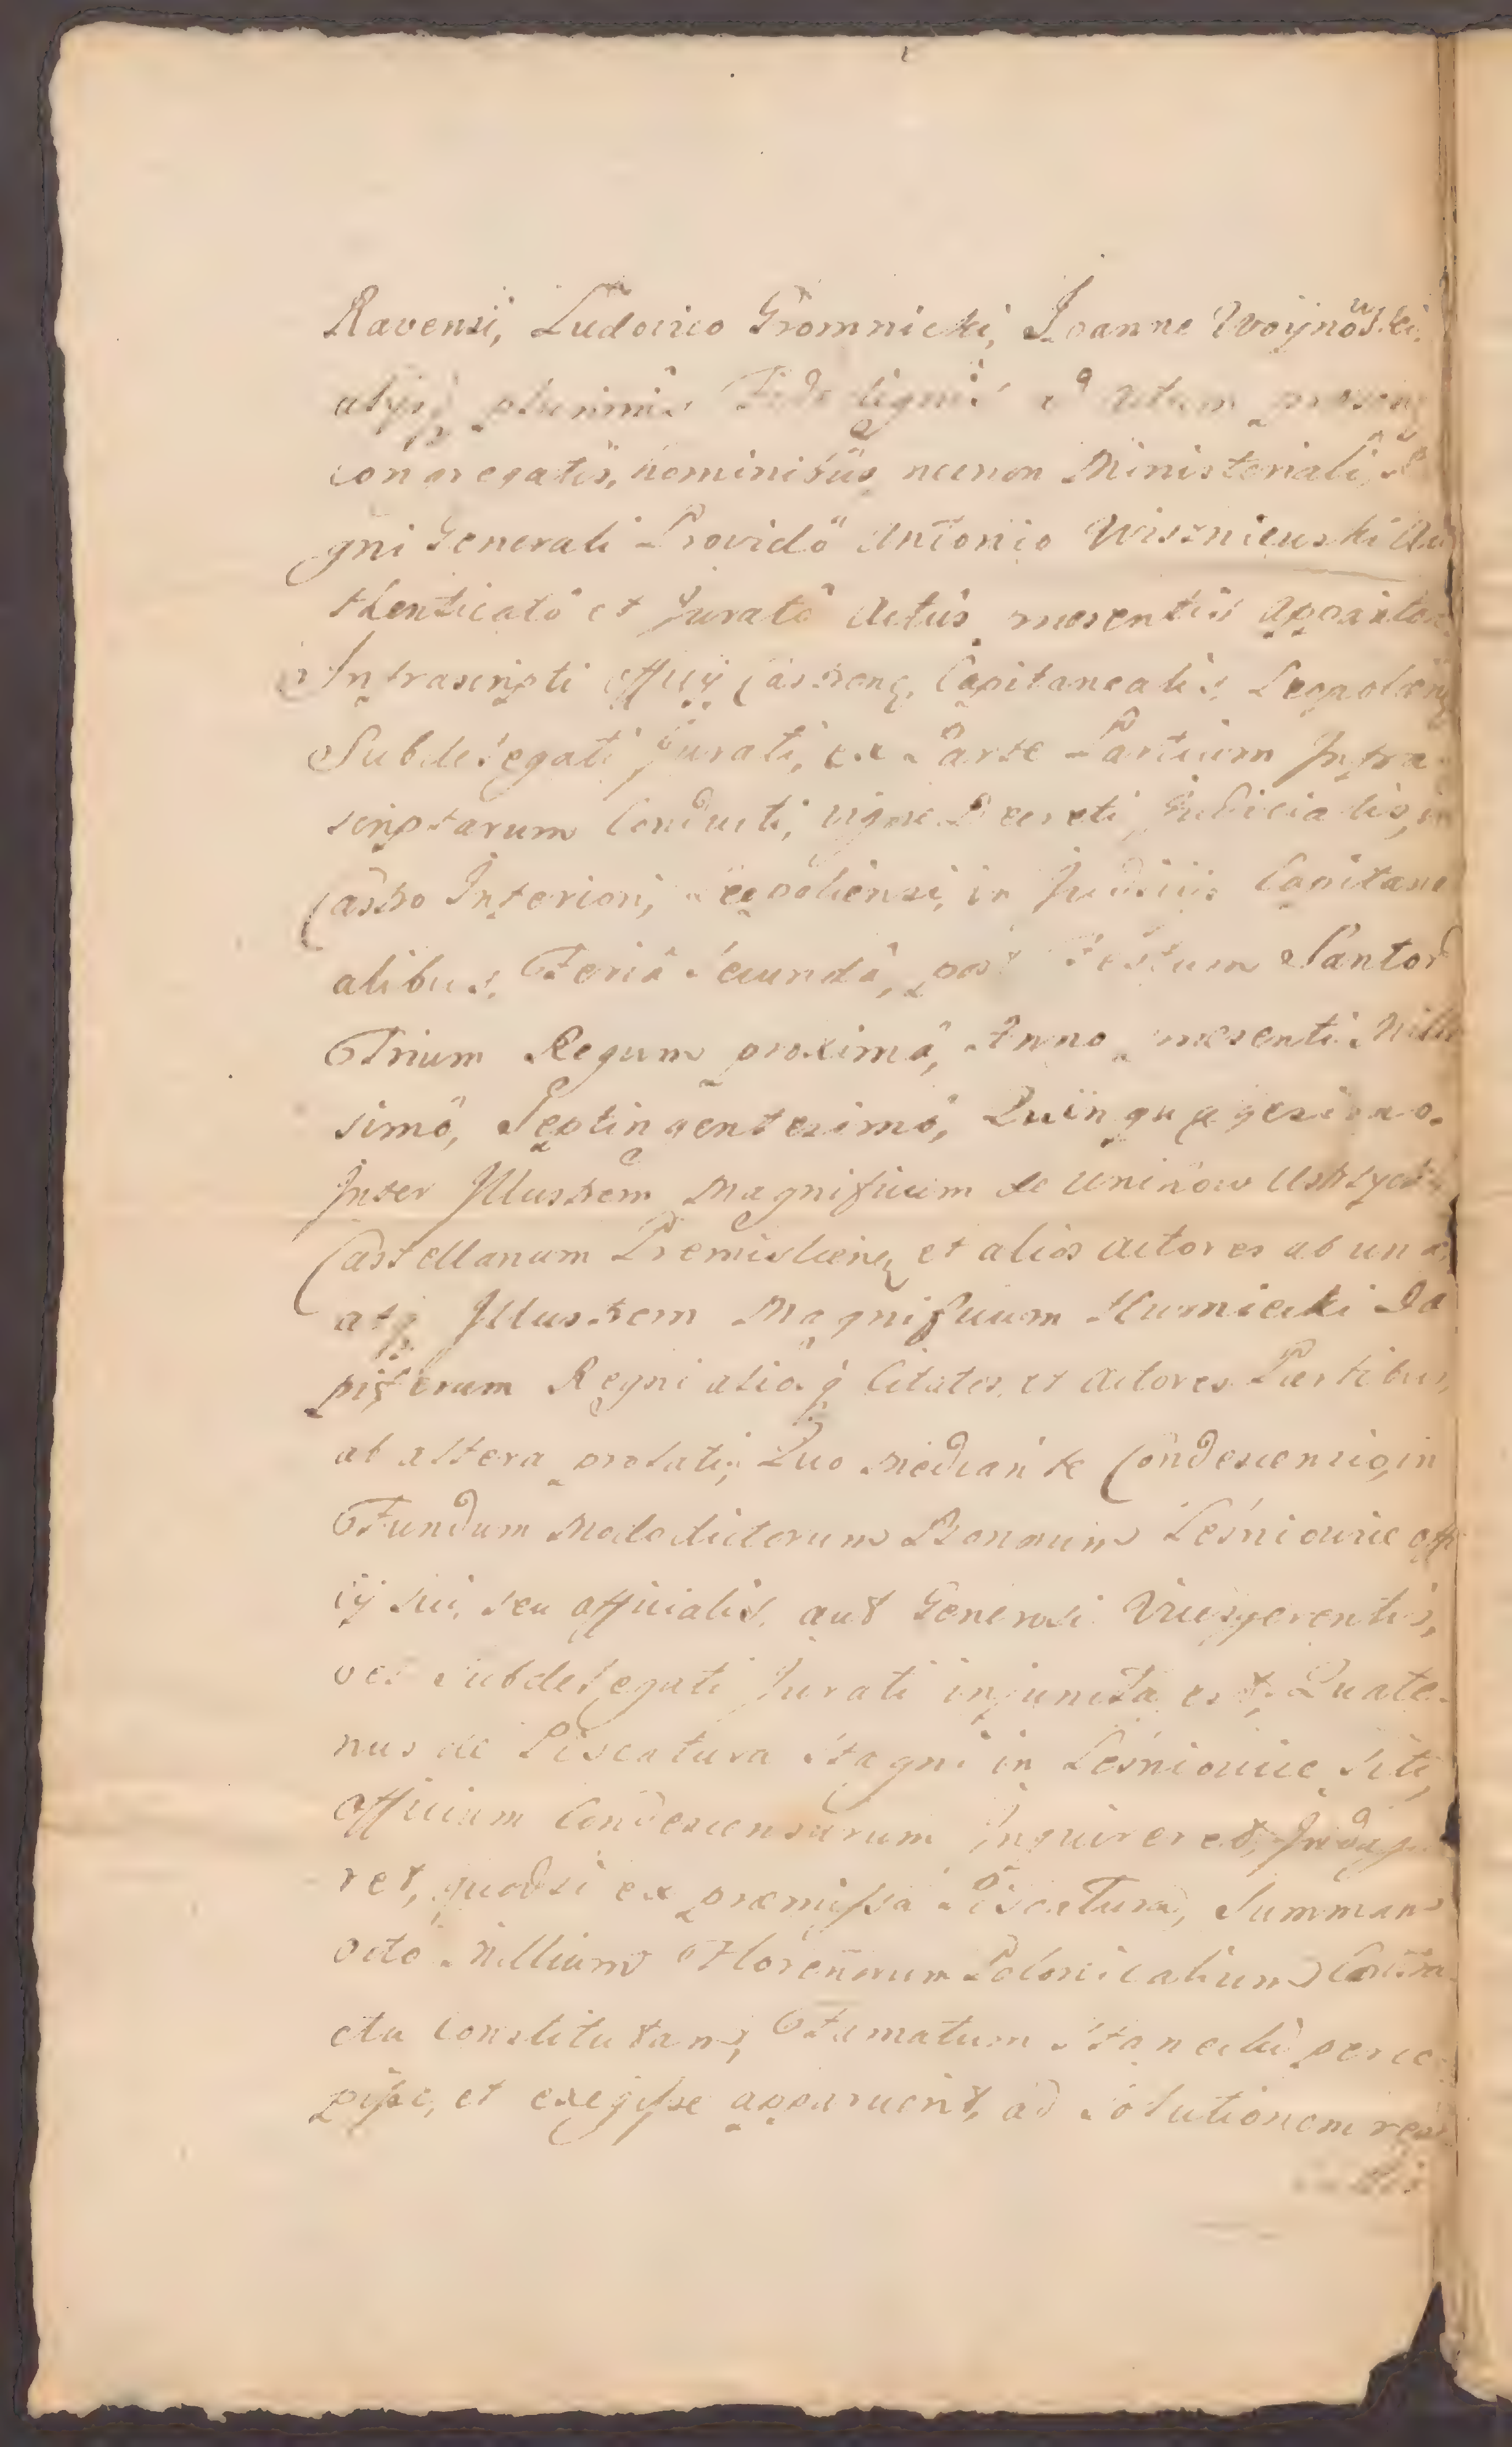 Ravensi, Ludovico Gromnicki, Joanne Woÿnowski,
alijsq plurimis Fide dignis ad Actum præsen
congregatis, hominibus necnon Ministeriali Re
gni Generali Providô Antonio Wiszniewski Au
thenticatô et Juratô Actûs præsentis
Infrascripti Offcij Castrenς Capitanealis Leopoliens
Subdelegati Jurati, ex Parte Partium Infra
scriptarum Conducti, vigore Decreti Judicialis, in
Castro Inferiori, Leopoliensi, in Judiciis Capitane
alibus, Feriâ Secundâ, post Festum Sanctor
Trium Regum proximâ, Anno præsenti Mille
simô, Septingentesimô, Quinquagesimo.
Inter Illustrem Magnificum de Uninow Ustrzycki
Castellanum Premislienς et alios Actores ab una
atq Illustrem Magnificum Humiecki Da
piferum Regni aliosq Citatos, et Actores Partibus,
ab altera prolati; Quo mediante Condescensio, in
Fundum modo dictorum Bonorum Leśniowice offi
cÿ sui, seu officialis, aut Generosi Vicesgerentis,
vel Subdelegati Jurati injuncta est. Quate-
nus de Piscatura Stagni in Leśniowice siti,
Officium Condescensurum inquireret, Indaga
ret, quodsi ex præmissa Piscatura, Summam
octo Millium Florenorum Polonicalium Contra
ctu constitutam, Famatum perce
pisse, et exegisse apparuerit, ad solutionem resi